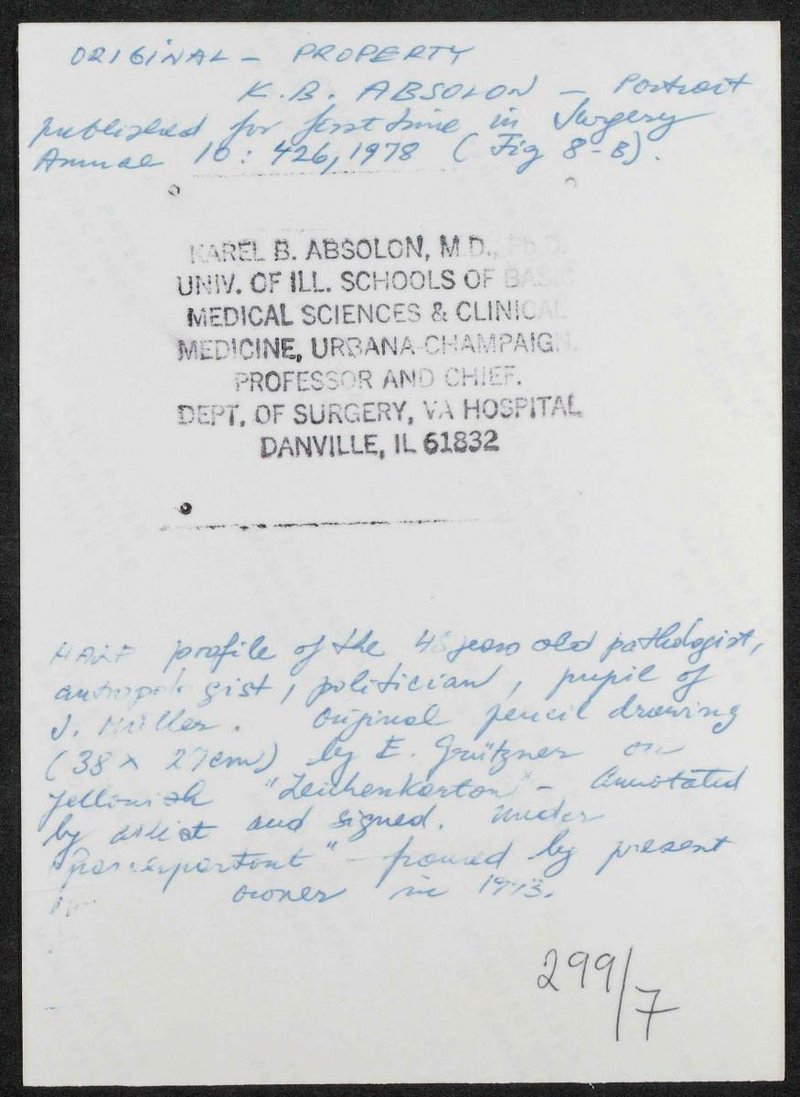 ORIGINAL - PROPERTY
K. B. ABSOLON - Portrait
published for first time in Surgery
Annual 10: 426, 1978 (Fig 8-B).
KAREL B. ABSOLON, M.D., Ph.D.
UNIV. OF ILL. SCHOOLS OF BASIC
MEDICAL SCIENCES & CLINICAL
MEDICINE, URBANA-CHAMPAIGN.
PROFESSOR AND CHIEF.
DEPT. OF SURGERY, VA HOSPITAL
DANVILLE, IL 61832
HALF profile of the years old pathologist,
antropologist, politician, pupil of
J. Müller. Original pencil drawing
(38 x 27cm) by E. Grützner on
yellowish "Zeichenkarton" - annotated
by artist and signed. Under
"passepartout" - framed by present
owner in 1973.
299/7